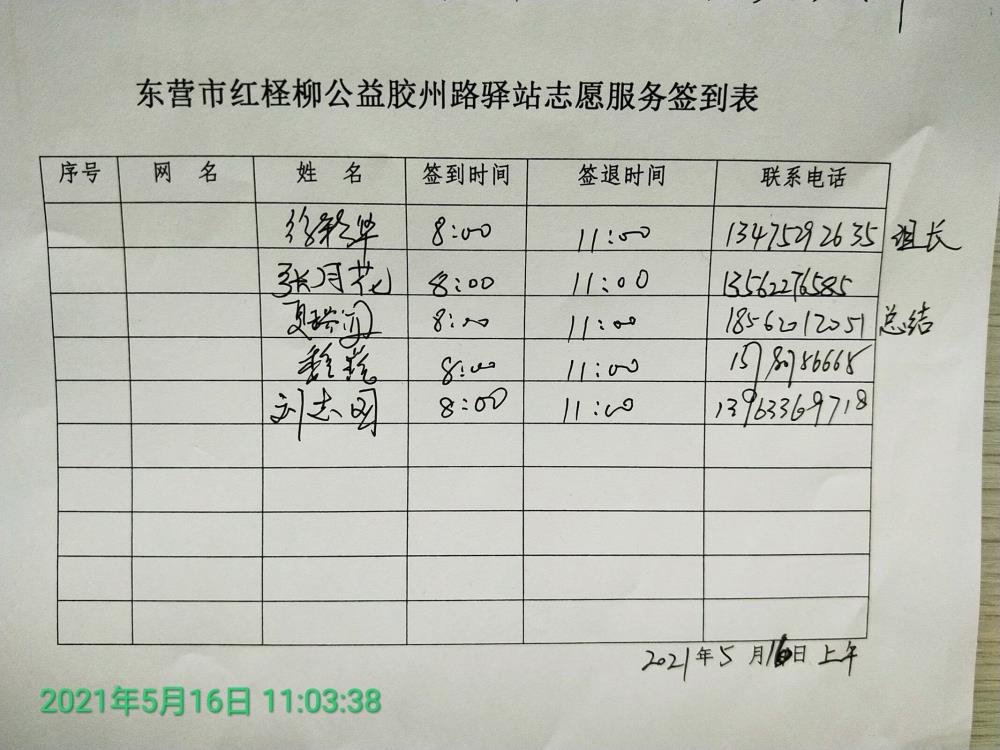 东营市红柽柳公益胶州路驿站志愿服务签到表
序号 网 名 姓 名 签到时间 签退时间 联系电话
8:00 11:00 13475292635 组长
张月花 8:00 11:00 13562276585
8:00 11:00 18562012051 总结
8:00 11:00
刘志国 8:00 11:00 13963369718
2021年5月16日上午
2021年5月16日 11:03:38